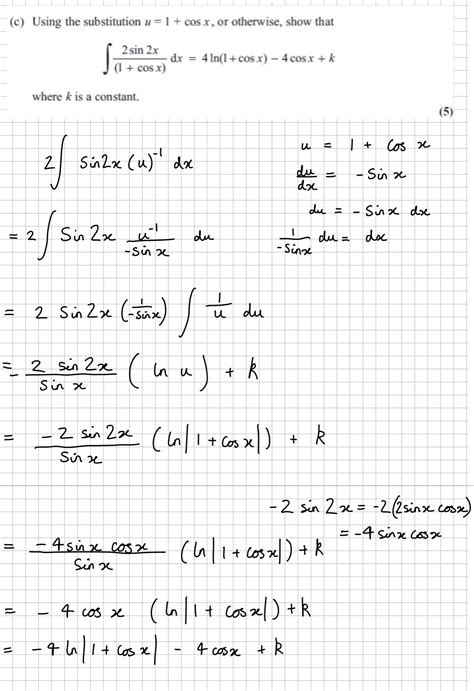 (c) Using the substitution u = 1 + cos x, or otherwise, show that
∫ 2 sin 2x / (1 + cos x) dx = 4 ln(1 + cos x) − 4 cos x + k
where k is a constant.
(5)
2∫ Sin2x (u)⁻¹ dx
u = 1 + Cos x
du/dx = - Sin x
du = - Sinx dx
= 2∫ Sin 2x u⁻¹/-sin x du
1/-Sinx du = dx
= 2 Sin2x (1/-sinx) ∫ 1/u du
= - 2 sin 2x / Sin x ( ln u ) + k
= -2 sin 2x / Sin x (ln|1 + cos x|) + k
-2 sin 2x = -2(2sinx cosx)
= -4 sinx cosx
= -4 sinx cosx / Sinx (ln|1 + cosx|) + k
= - 4 cos x (ln|1 + cosx|) + k
= -4 ln|1 + cosx| - 4 cosx + k